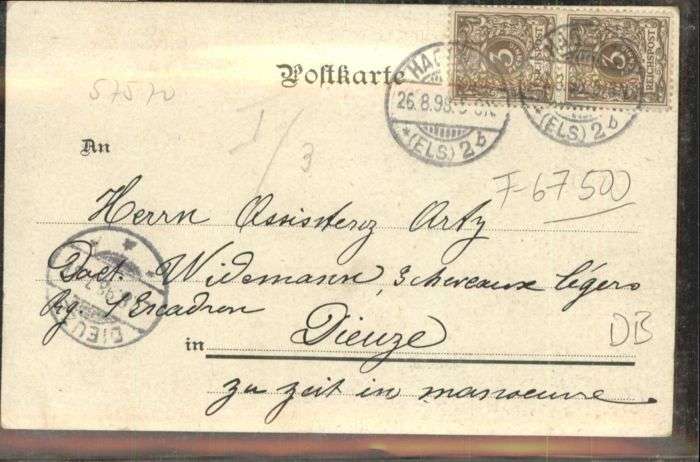 3 REICHSPOST 3 REICHSPOST
Postkarte
HAG
26.8.98.
*(ELS) 2b
(ELS) 2b
57570
1/3
An
F-67500
Herrn Assistenz Artz
Doct. Widemann, 3 chevaux légers
Rg. 1 Escadron
DIEUZ
in Dieuze
DB
zu zeit in manoeuvre.